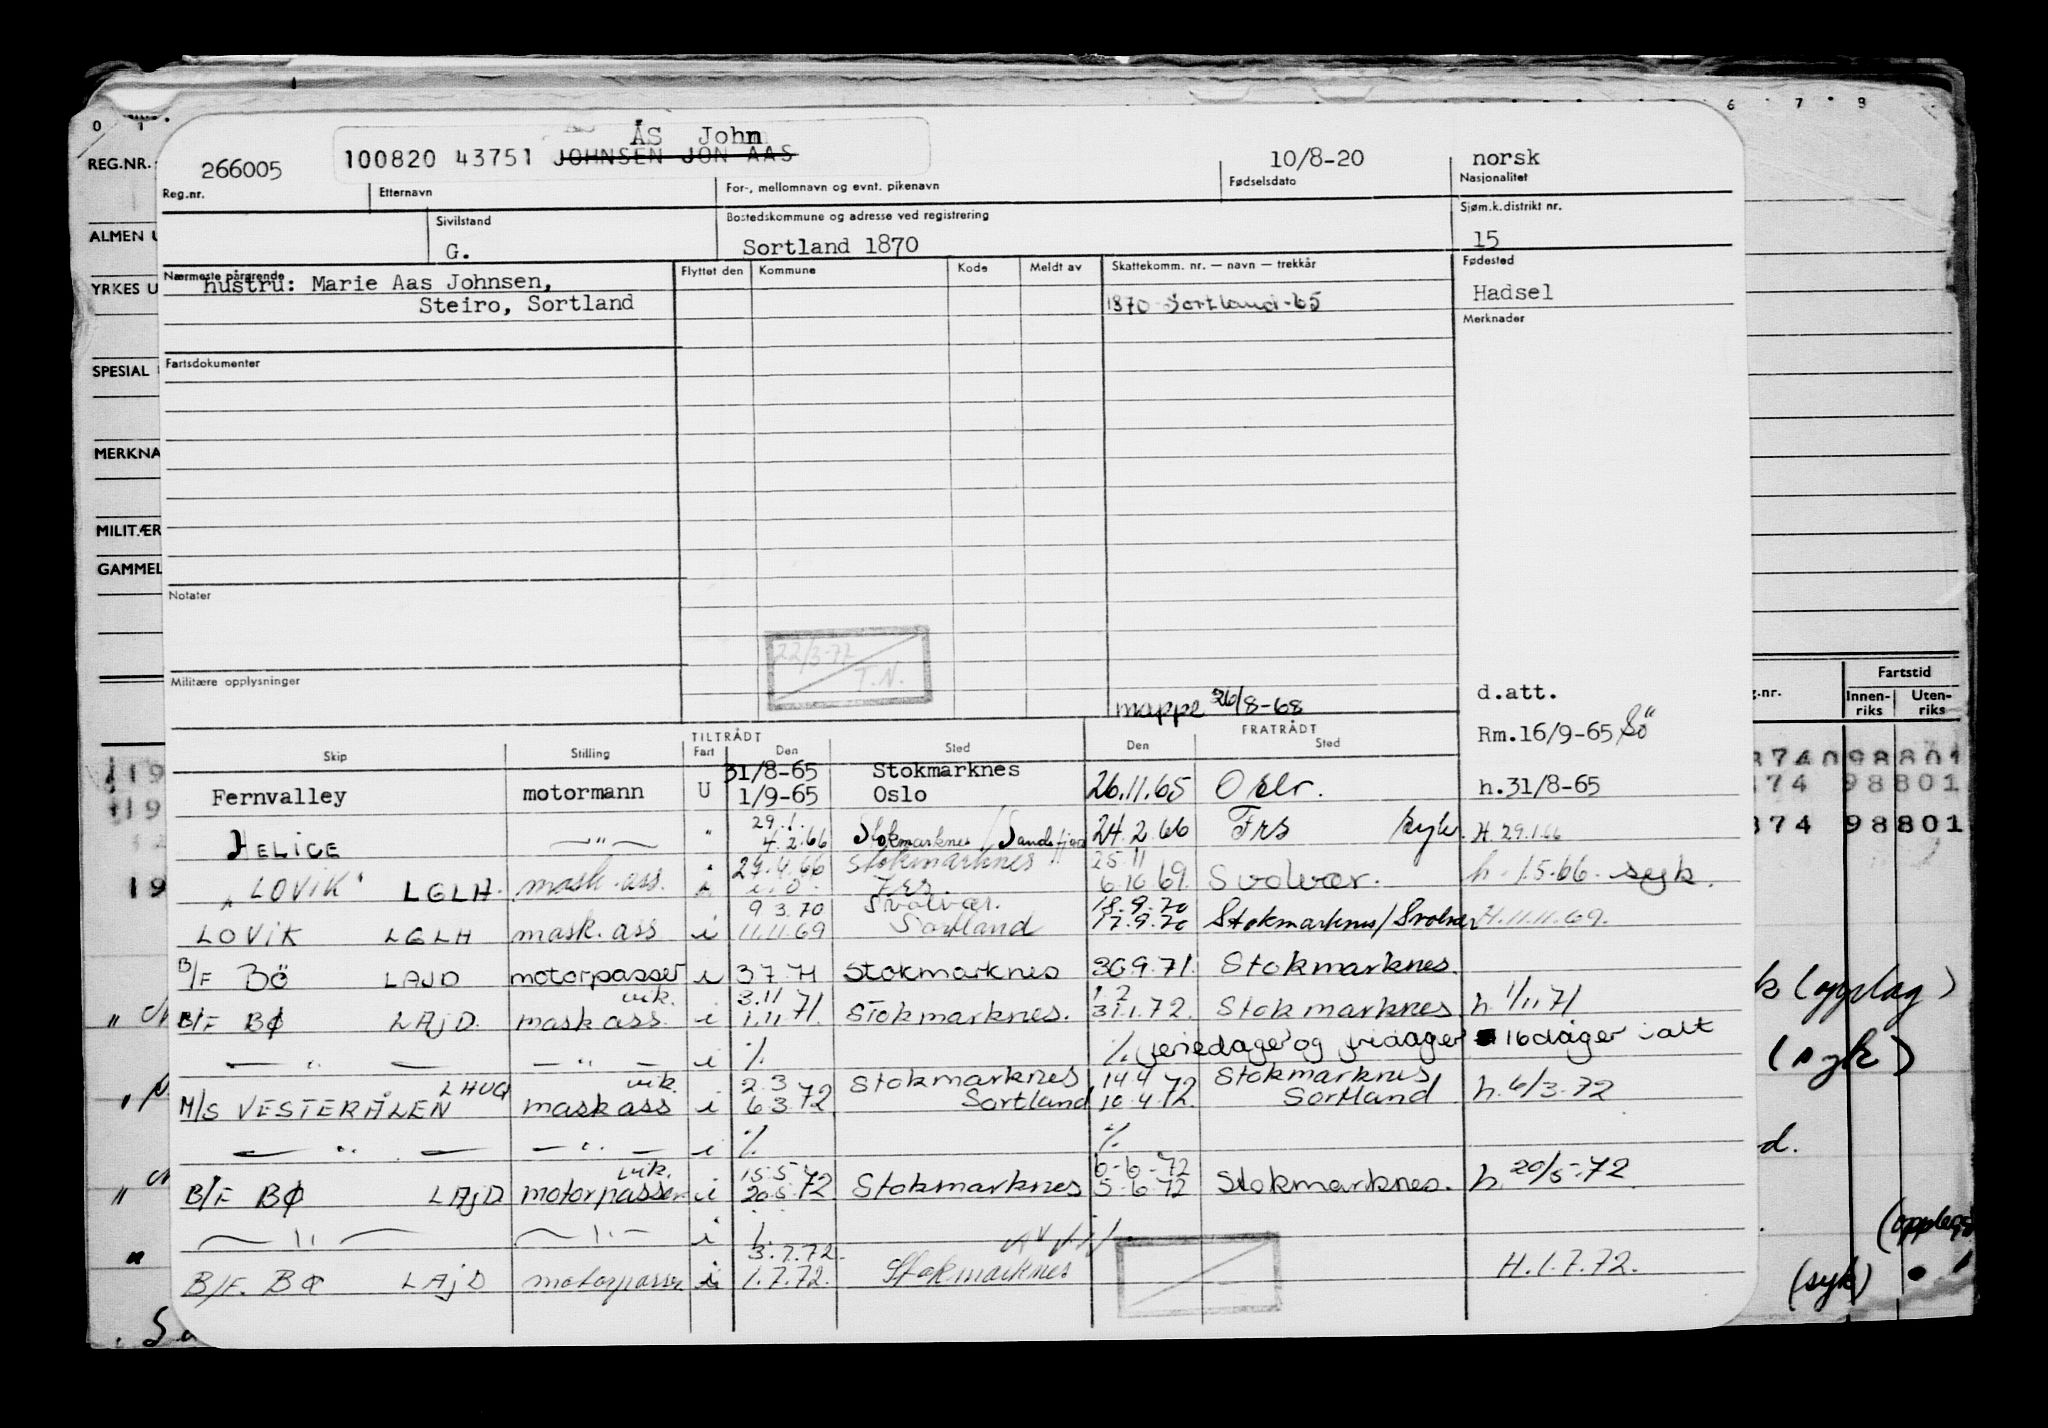 0 1 6 7 8
REG.NR.
ALMEN U
YRKES U
SPESIAL
MERKNA
MILITÆR
GAMMEL
266005 100820 43751 ÅS John JOHNSEN JON AAS 10/8-20 norsk
Reg.nr. Etternavn For-, mellomnavn og evnt. pikenavn Fødselsdato Nasjonalitet
Sivilstand Bostedskommune og adresse ved registrering Sjøm.k.distrikt nr.
G. Sortland 1870 15
Nærmeste pårørende Flyttet den Kommune Kode Meldt av Skattekomm. nr. — navn — trekkår Fødested
hustru: Marie Aas Johnsen,
Steiro, Sortland 1870 Sortland-65 Hadsel
Merknader
Fartsdokumenter
Notater
22/3-77
T.N.
Militære opplysninger
mappe 26/8-68 d.att.
Rm.16/9-65 Sö
TILTRÅDT FRATRÅDT
Skip Stilling Fart Den Sted Den Sted
31/8-65 Stokmarknes
Fernvalley motormann U 1/9-65 Oslo 26.11.65 Oslo. h.31/8-65
29.1.
HELICE —"— " 4.2.66 Stokmarknes/Sandefjord 24.2.66 Frs syk. H.29.1.66
24.4.66 Stokmarknes 25 11
"LOVIK" LGLH. mask.ass. i Frs. 6.10 69. Svolvær. h. 1.5.66. syk.
9 3.70 Svolvær. 18.9.70
LOVIK LGLH mask.ass i 11.11.69 Sortland 17.9.70 Stokmarknes/Svolvær H.11.11.69.
B/F BÖ LAJD motorpasser i 3 7.71 Stokmarknes 30.9.71. Stokmarknes.
vik. 3.11 1 2
B/F BØ LAJD. mask ass. i 1.11.71. Stokmarknes. 31.1.72. Stokmarknes h. 1/11 71
— " — — " — i % % feriedager og fridager 16 dager i alt
LHUQ vik. 2.3 Stokmarknes 14.4 Stokmarknes
M/S VESTERÅLEN mask ass i 6 3.72 Sortland 10.4.72. Sortland h. 6/3.72
— " — — " — i % %
vik. 15.5 6-6-72
B/F BØ LAJD motorpasser i 20.5.72 Stokmarknes 5-6-72 Stokmarknes. h. 20/5-72
— " — — " — i
3.7.72.
B/F. BØ LAJD motorpasser i 1.7.72. Stokmarknes H.1.7.72.
g.nr. Fartstid
Innen-riks Uten-riks
874098801
874 98801
874 98801
19
19
19
k (opplag)
(syk)
d.
(opplag
(syk)